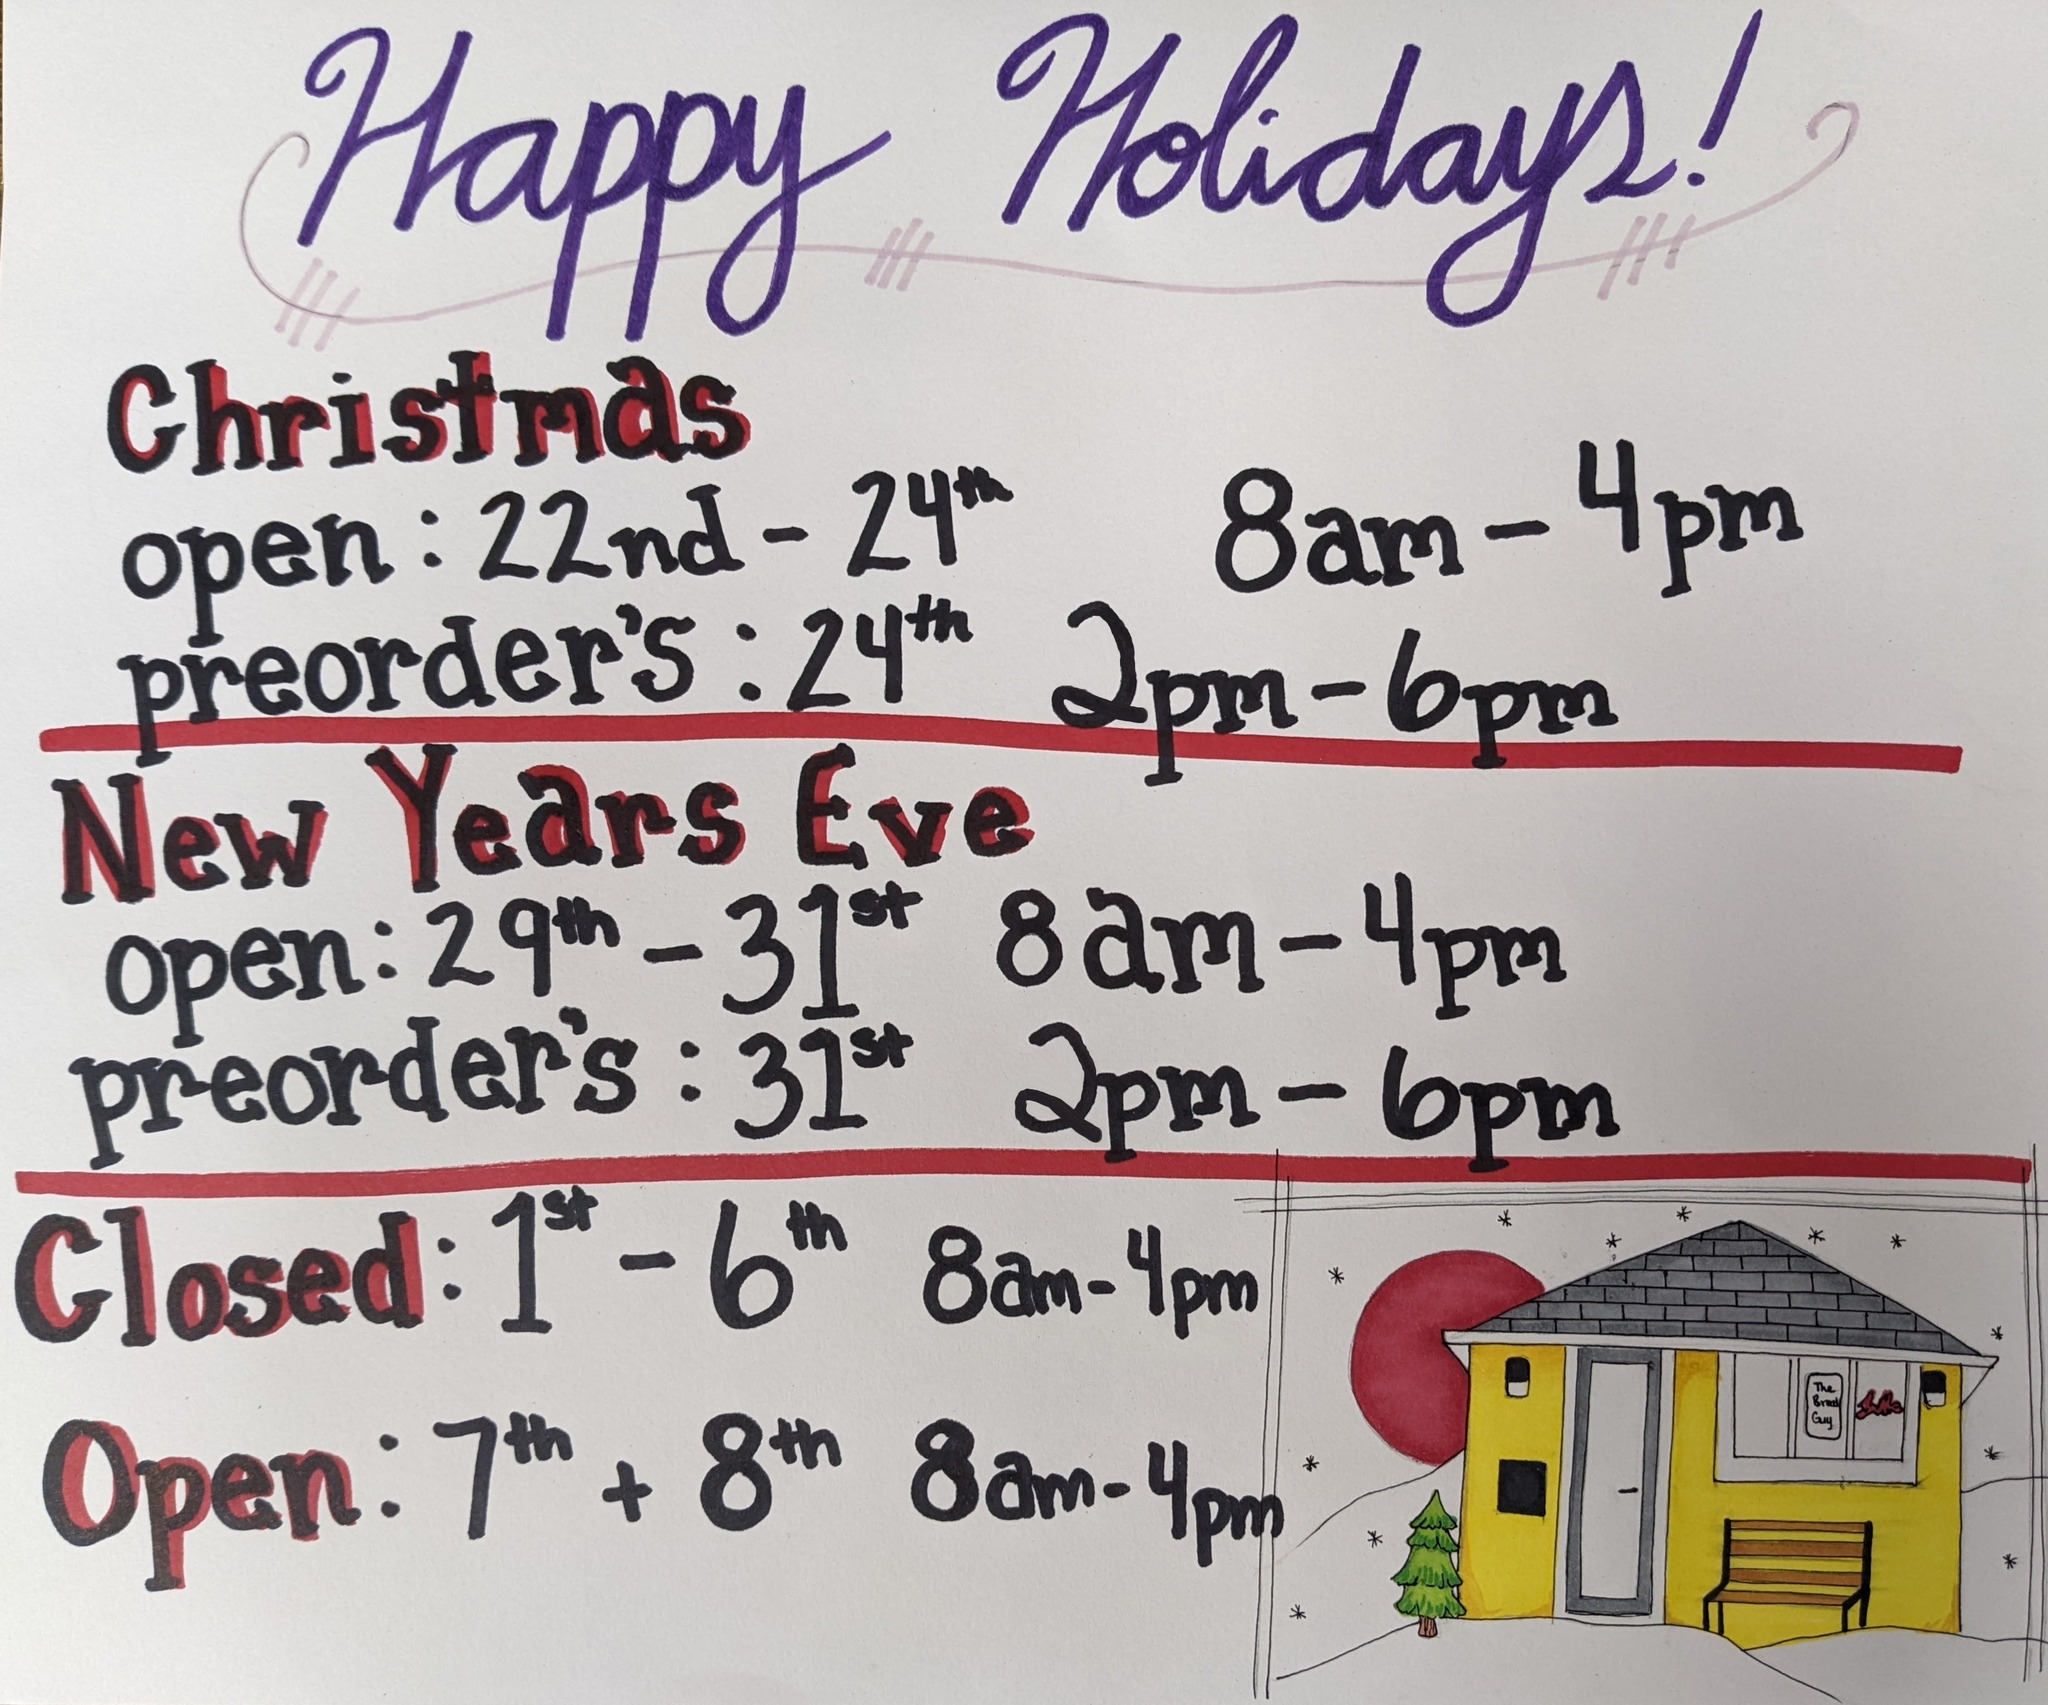 Happy Holidays!
Christmas
open: 22nd - 24th 8am - 4pm
preorder's: 24th 2pm - 6pm
New Years Eve
open: 29th - 31st 8am - 4pm
preorder's: 31st 2pm - 6pm
Closed: 1st - 6th 8am - 4pm
Open: 7th + 8th 8am - 4pm
The
Bread
Guy